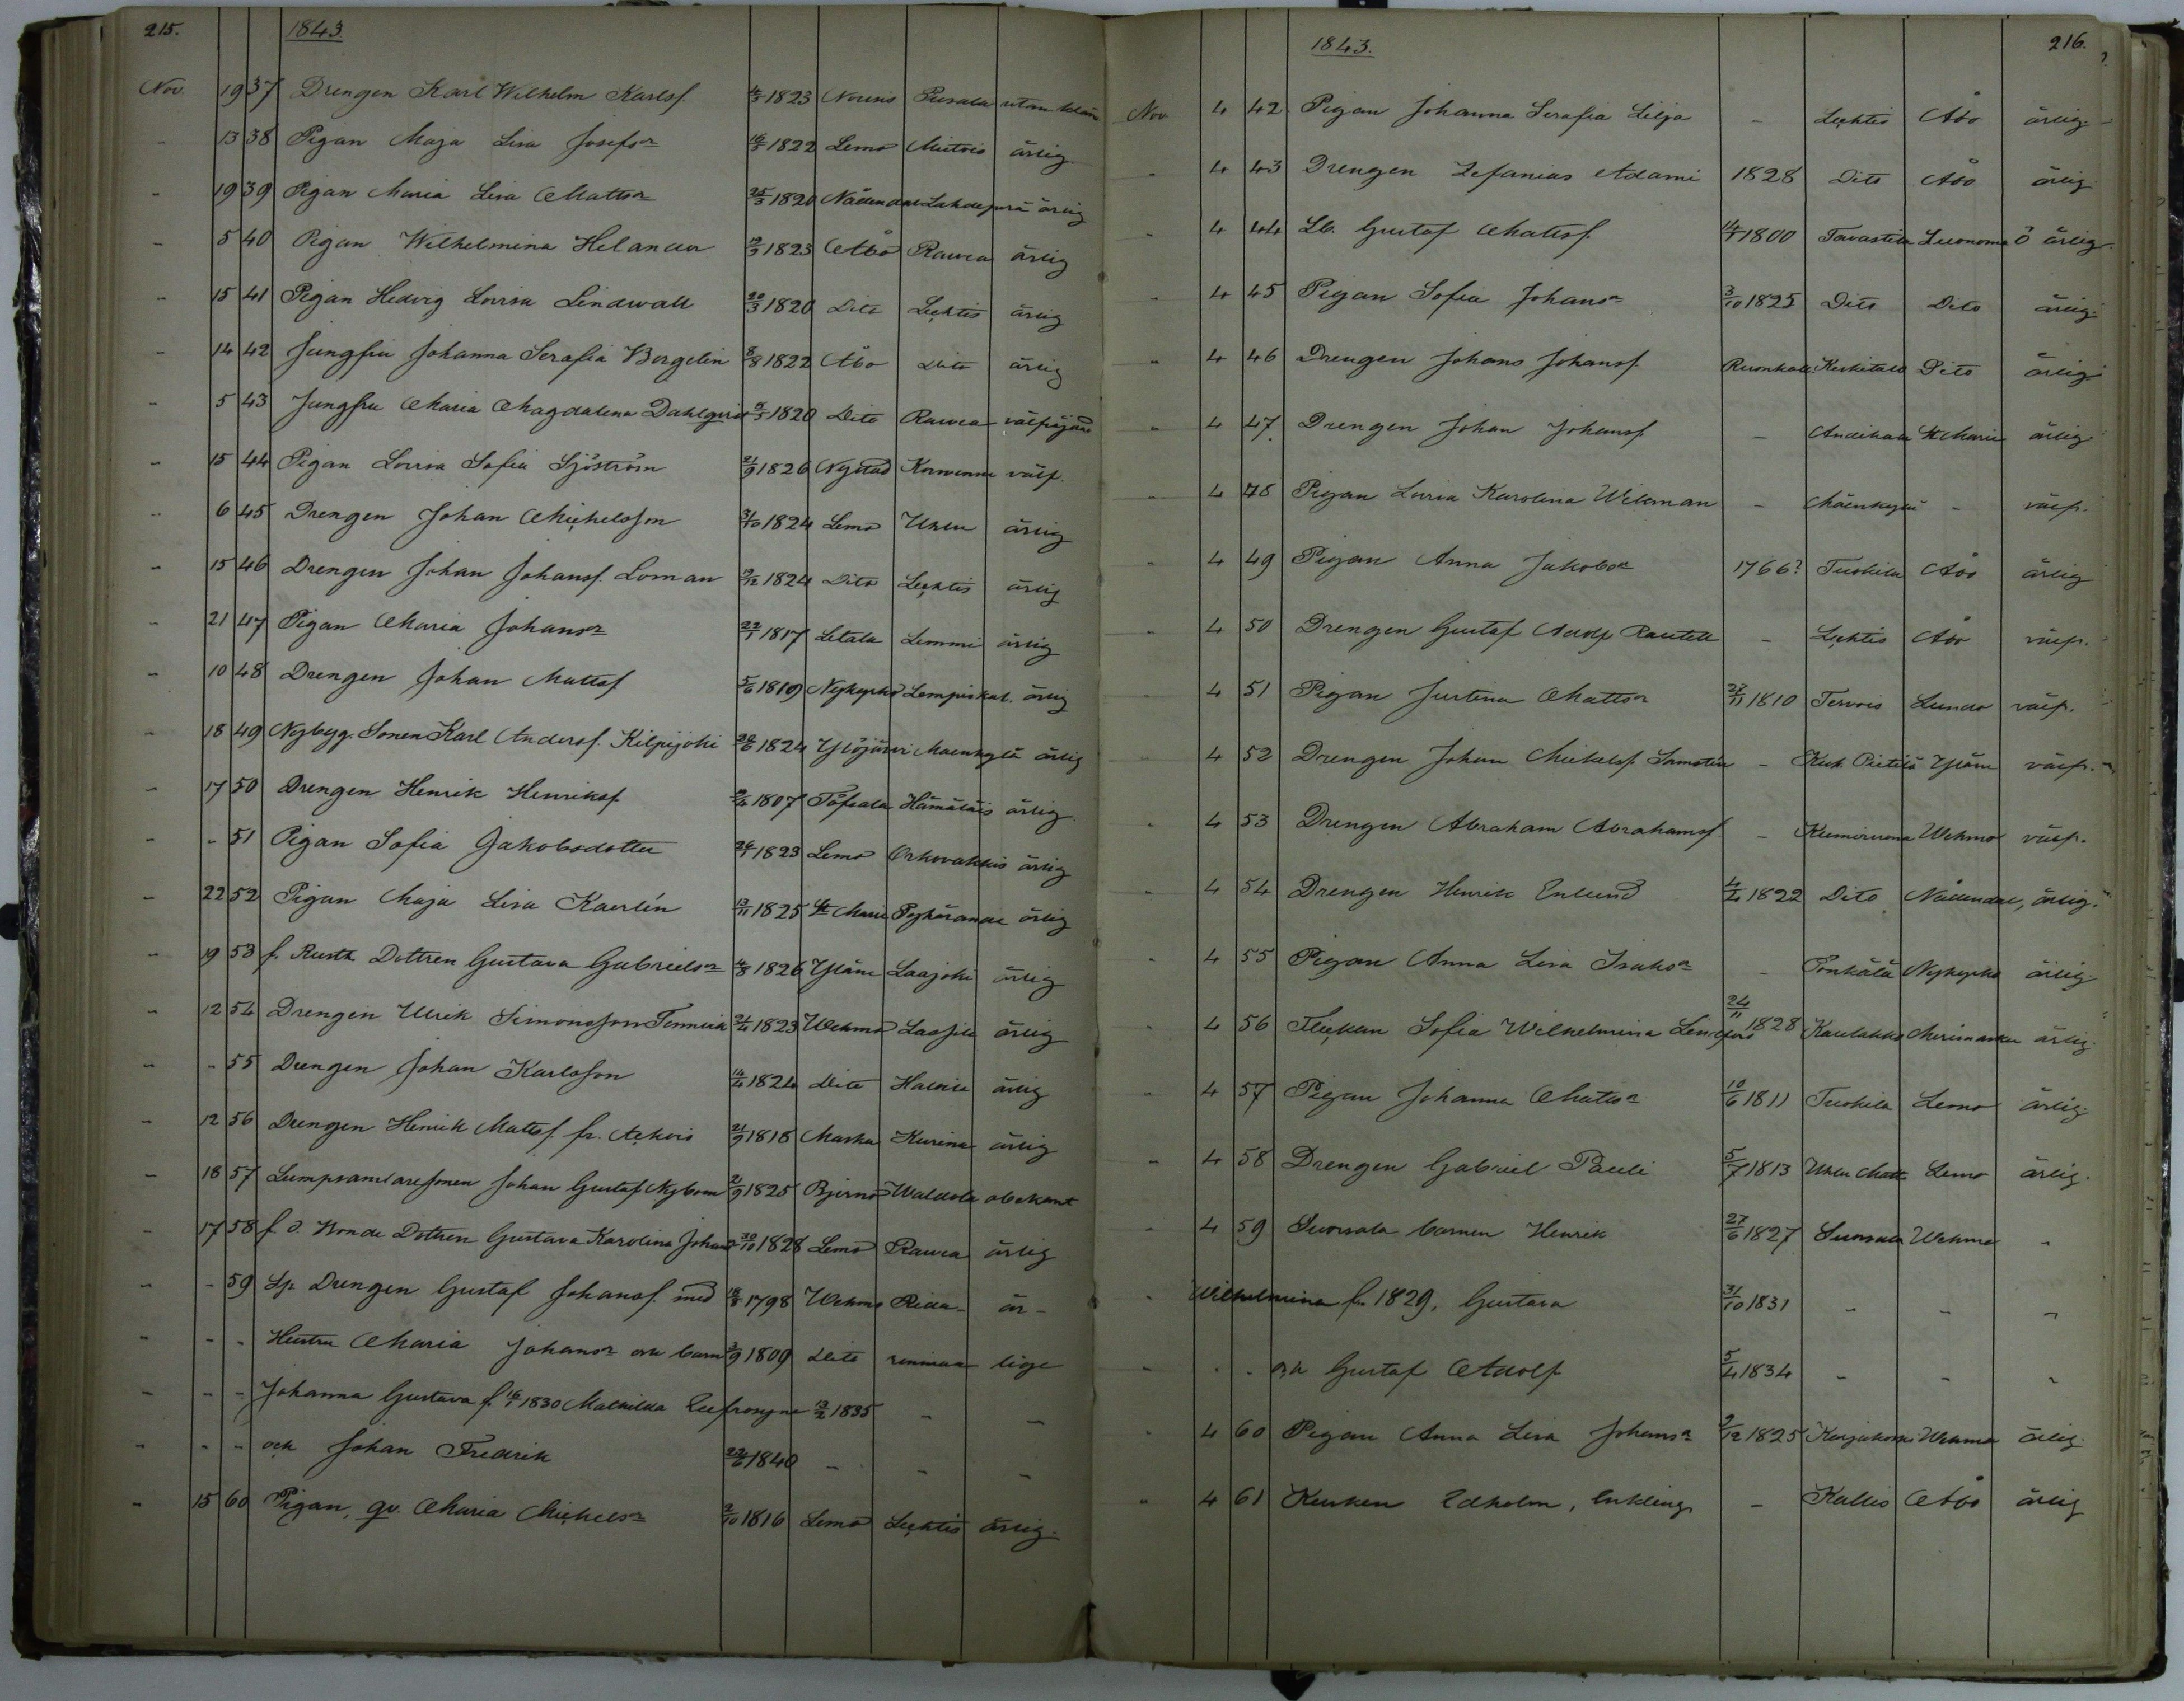 215. 1843
Nov. 19 37 Drengen Karl Wilhelm Karlsf. 4/5 1823 Nousis Pusala utan
- 13 38 Pigan Maja Lisa Josefsr 16/5 1822 Lemo Mietois ärlig
- 19 39 Pigan Maria Lisa Mattsr 25/3 1820 Nådendal Lahdeperä ärlig
- 5 40 Pigan Wilhelmina Helander 12/3 1823 Åbo Rauvea ärlig
- 15 41 Pigan Hedvig Lovisa Lindwall 20/3 1820 Dito Leçhtis ärlig
- 14 42 Jungfru Johanna Serafia Bergelin 8/8 1822 Åbo Dito ärlig
- 5 43 Jungfru Maria Magdalena Dahlqvist 5/5 1820 Dito Rauvea välfrejdad
- 15 44 Pigan Lovisa Sofia Sjöström 21/9 1826 Nystad Korvenna välf.
- 6 45 Drengen Johan Miçhelsson 31/10 1824 Lemo Uhlu ärlig
- 15 46 Drengen Johan Johansf. Loman 9/12 1824 Dito Leçhtis ärlig
- 21 47 Pigan Maria Johansr 22/1 1817 Letala Lemmi ärlig
- 10 48 Drengen Johan Mattsf 5/6 1819 Nykyrko Lempiskal. ärlig
- 18 49 Nybyg. Sonen Karl Andersf. Kilpijoki 28/6 1824 Ylöjärvi Maenkylä ärlig
- 17 50 Drengen Henrik Henriksf. 9/6 1807 Töfsala Hämäläis ärlig
- - 51 Pigan Sofia Jakobsdotter 26/1 1823 Lemo Orhovakkis ärlig
- 22 52 Pigan Maja Lisa Kaerlén 13/11 1825 St Marie Pyhäranda ärlig
- 19 53 f. Rusth. Dottren Gustava Gabrielsr 4/8 1826 Yläne Laajoki ärlig
- 12 54 Drengen Ulrik Simonsson Fennvik 21/4 1823 Wehmo Lassila ärlig
- - 55 Drengen Johan Karlsson 14/4 1824 Dito Halkila ärlig
- 12 56 Drengen Henrik Mattsf. fr. Açkois 21/9 1818 Masku Kurina ärlig
- 18 57 Lumpsamlaresonen Johan Gustaf Nybom 2/9 1825 Bjerno Waldola obekant
- 17 58 f. d. Bonde Dottren Gustava Karolina Johansr 30/10 1828 Lemo Rauvea ärlig
- - 59 Sp. Drengen Gustaf Johansf. med 18/8 1798 Wehmo Rida- är-
- - - Hustru Maria Johansr oçh barn 3/9 1809 Dito rinmaa lige
- - - Johanna Gustava f. 16/1 1830 Mathilda Eufrosyne 13/2 1835 - -
- - - oçh Johan Fredrik 22/6 1840 - - -
- 15 60 Pigan, qv. Maria Miçhelsr 2/10 1816 Lemo Leçhtis ärlig.
1843. 216.
Nov 4 42 Pigan Johanna Serafia Lilja - Leçhtis Åbo ärlig.
- 4 43 Drengen Zefanias Adami 1828 Dito Åbo ärlig
- 4 44 Lb. Gustaf Mattsf. 14/1 1800 Tavastila Luonomaö ärlig.
- 4 45 Pigan Sofia Johansr 3/10 1825 Dito Dito ärlig.
- 4 46 Drengen Johans Johansf. Ruonkall: Keskitalo Dito ärlig
- 4 47. Drengen Johan Johansf. - Andikala St Marie ärlig
- 4 48 Pigan Lovisa Karolina Wileman - Mäenkylä - välf.
- 4 49 Pigan Anna Jakobsr 1766? Tuohila Åbo ärlig
- 4 50 Drengen Gustaf Adolf Rautell - Leçhtis Åbo välf.
- 4 51 Pigan Justina Mattsr 27/11 1810 Tervois Lundo välf.
- 4 52 Drengen Johan Mickelsf. Samstén - Kuk. Pietilä Yläne välf.
- 4 53 Drengen Abraham Abrahamsf - Wehmo välf.
- 4 54 Drengen Henrik Enlund 4/4 1822 Dito Nådendal, ärlig.
- 4 55 Pigan Anna Lisa Isaksr - Nykyrko ärlig
- 4 56 Fliçkan Sofia Wilhelmina Lindfors 24/11 1828 Kaulakko Merimasku ärlig.
- 4 57 Pigan Johanna Mattsr 10/6 1811 Tuohila Lemo ärlig.
- 4 58 Drengen Gabriel Pauli 5/7 1813 Uhlu Matt. Lemo ärlig.
- 4 59 Suorsala barnen Henrik 27/6 1827 Suorsala Wehmo -
- Wilhelmina f. 1829. Gustava 31/10 1831 - - -
- - - oçh Gustaf Adolf 5/4 1834 - - -
- 4 60 Pigan Anna Lisa Johansr 9/12 1825 Karjakoski Wehmo ärlig.
- 4 61 Kusken Edholm, Enkling - Kallis Åbo ärlig